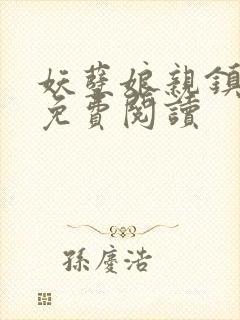 妖孽娘親鎮
免費閱讀
孫慶浩